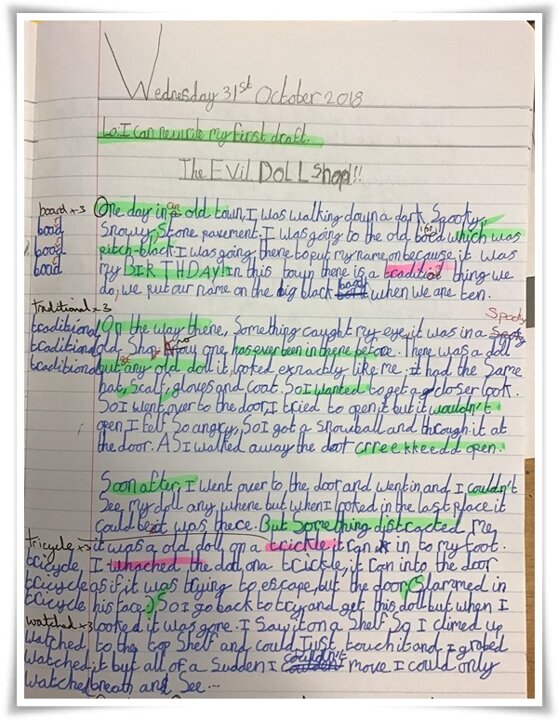 Wednesday 31st October 2018
Lo: I can rewrite my first draft.
The Evil DOLL Shop!!
board x3
boad
boad
boad
One day in an old town, I was walking down a dark Spooky,
Snowy, Stone pavement. I was going to the old boad which was
pitch-black. I was going there to put my name on because it was
my BiRTHDAY! In this town there is a traditial thing we
do, we put our name on the big black board when we are ten.
traditional x3
traditional
traditional
traditional
Spooky
On the way there, Something caught my eye, it was in a
old Shop. no one has ever been in there before. There was a doll
but any old doll it looked exractly like me. it had the Same
hat, Scalf, gloves and coat. So I wanted to get a closer look.
So I went over to the door, I tried to open it but it wouldn't
open I felt So angry, So I got a snowball and through it at
the door. AS I walked away the door crreekkeedd open.
Soon after, I went over to the door and went in and I couldn't
See my doll any where but when I looked in the last place it
could be it was there. But Something distracted me.
tricycle x3
tricycle
tricycle
tricycle
it was a old doll on a trickle it ran in to my foot.
I whached the doll on a trickle, it ran into the door
as if it was trying to escape, but the door Slammed in
his face. So I go back to try and get this doll but when I
watched x3
watched
watched
watched
looked it was gone. I Saw it on a Shelf So I climed up
to the top Shelf and could Just touch it and I grabed
it but all of a Sudden I couldn't move I could only
breath and See ...